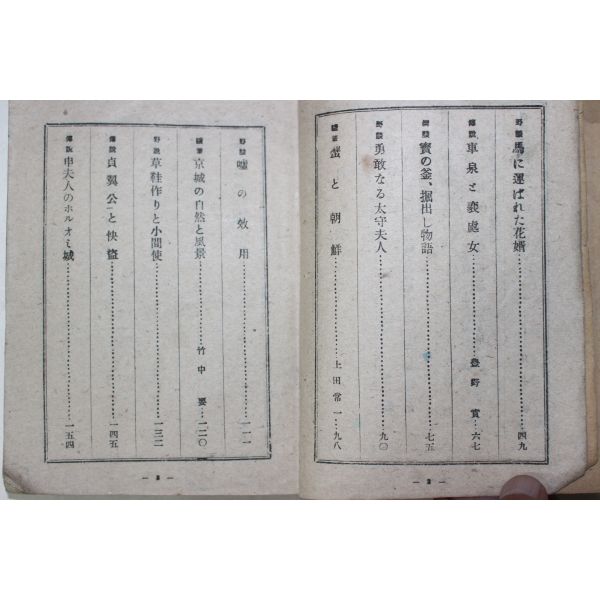 野談 馬に運ばれた花婿 四九
傳說 車泉と裵處女 豊野實 六七
傳說 寶の釜、掘出し物語 七五
野談 勇敢なる太守夫人 九〇
隨筆 蟹と朝鮮 上田常一 九八
— 2 —
野談 嘘の效用 一一一
隨筆 京城の自然と風景 竹中要 一二〇
野談 草鞋作りと小間使 一三二
傳說 貞翼公と快盜 一四五
傳說 申夫人のホルオミ城 一五四
— 3 —